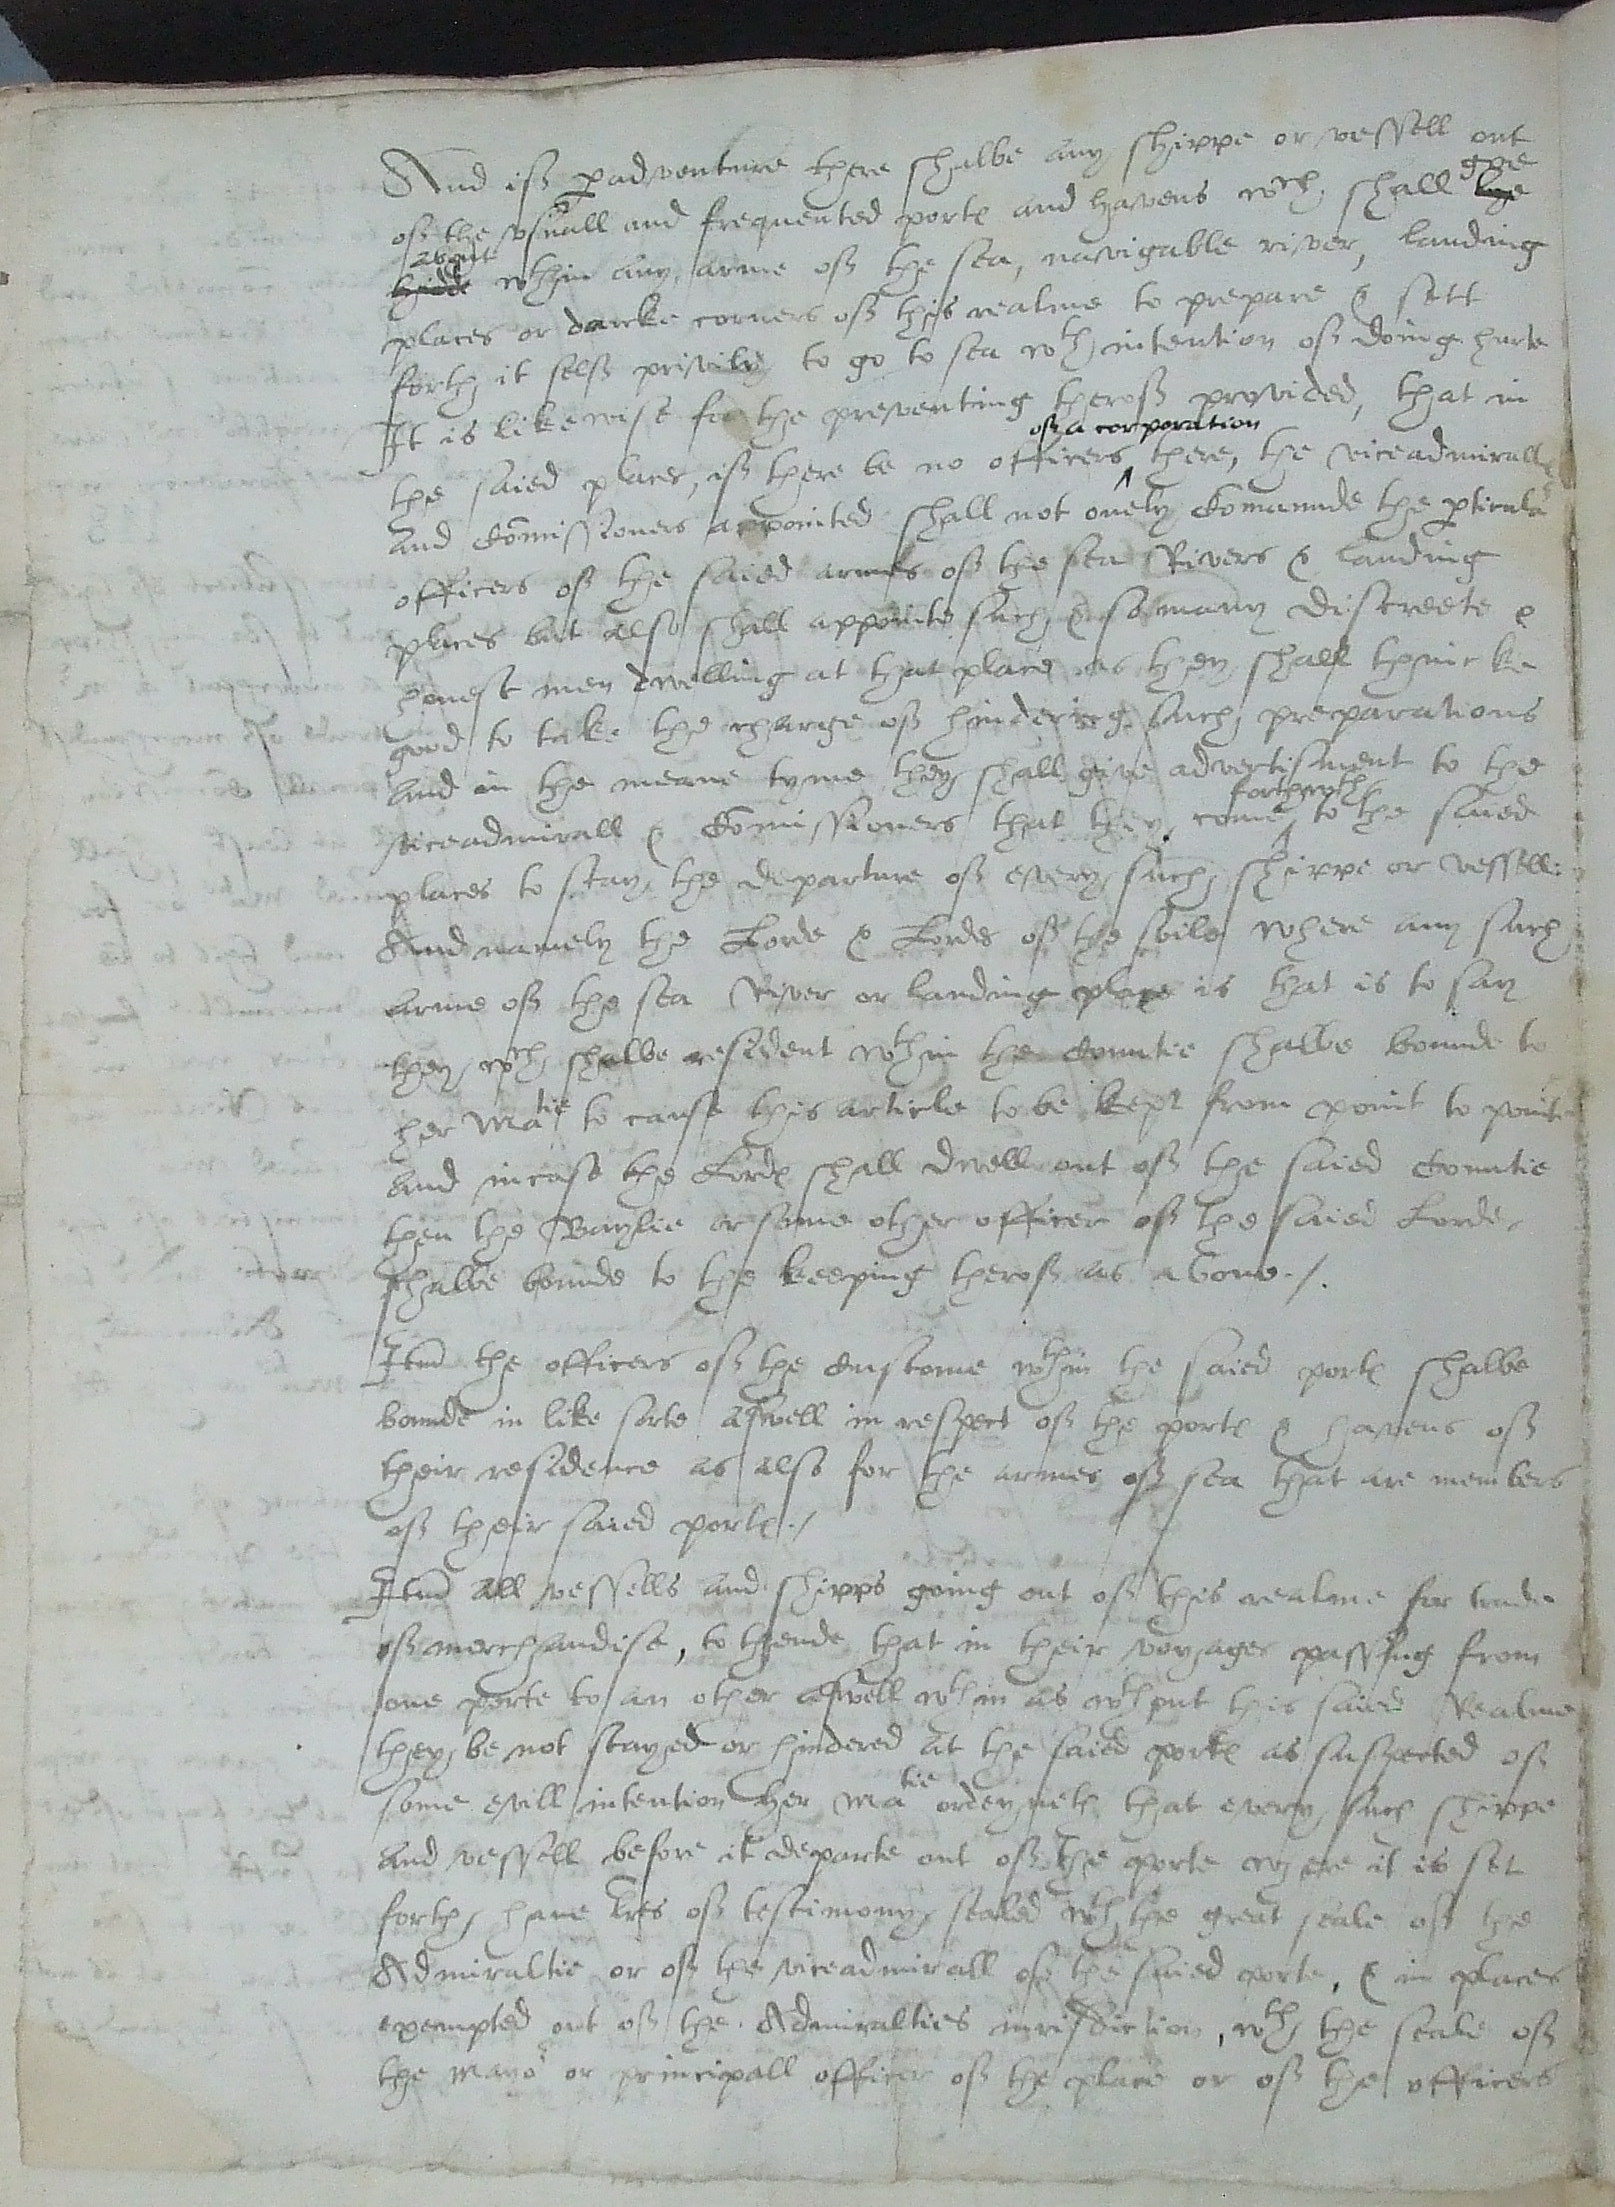 And if p̱adventure there shalbe any shippe or vessell out
of the vsuall and frequented port℮ and havens wch shall goe
lye
about
hidde wthin any arme of the sea, navigable river, landing
places or darke corners of this realme to prepare & sett
forth it self privily to go to sea wth intention of doing hurte
It is likewise for the preventing therof provided, that in
of a corporation
the saied places, if there be no officers ^ there, the viceadmirall℮
and Com̄issioners appointed shall not onely Comaunde the p̱ticuler
officers of the saied armes of the sea Rivers & landing
places but also shall appointe such & so many discreete &
honest men dwelling at that place as they shall thincke
good to take the charge of hindering such preparations
and in the meane tyme they shall give advertisment to the
forthwth
viceadmirall & Com̄issioners that they come ^ to the saied
places to stay the departure of every such shippe or vessell:
And namely the Lorde & Lordes of the soile where any such
arme of the sea River or landing place is that is to say
they wch shalbe resident wthin the Countie shalbe bounde to
her Matie to cause this article to be kept from point to pointe
And incase the Lord℮ shall dwell out of the saied Countie
then the Baylie or some other officer of the saied Lorde
shalbe bounde to the keeping therof as above./.
Itm̄ the officers of the Custome wthin the saied port℮ shalbe
bounde in like sorte aswell in respect of the port℮ & havens of
their residence as also for the armes of sea that are members
of their saied port℮./
Itm̄ all vessells and shipps going out of this realme for trade
of merchandise, to thende that in their voyages passing from
one porte to an other aswell wthin as wthout this saied Realme
they be not stayed or hindered at the saied port℮ as suspected of
some evill intention her Matie ordeyneth that every such shippe
and vessell before it departe out of the porte where it is set
forth, have lr̄es of testimony sealed wth the great seale of the
Admiraltie or of the viceadmirall of the saied porte, & in places
exempted out of the Admiralties iurisdiction, wth the seale of
the mayor or principall officer of the place or of the officers